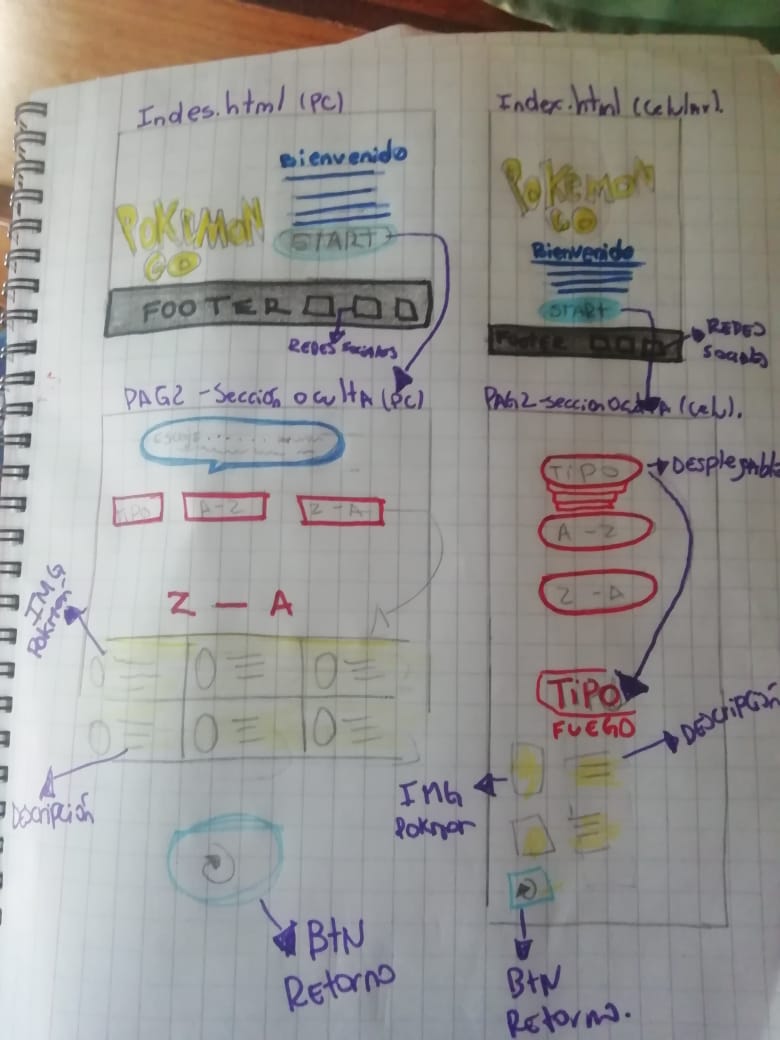 Indes.html (PC)
Bienvenido
POKEMON
GO
START
FOOTER
REDES Sociales
PAG2 - Sección ocultA (PC)
TIPO
A-Z
Z-A
Z — A
IMG
Descripción
BtN
REtorno
Index.html (Celular).
POKEMON
GO
Bienvenido
START
FOOTER
REDES
Sociales
PAG2-seccion (Celu).
TIPO
DESPlegable
A - Z
Z - A
TiPO
FUEGO
DESCRIPCIÓN
IMG
BtN
REtorno.